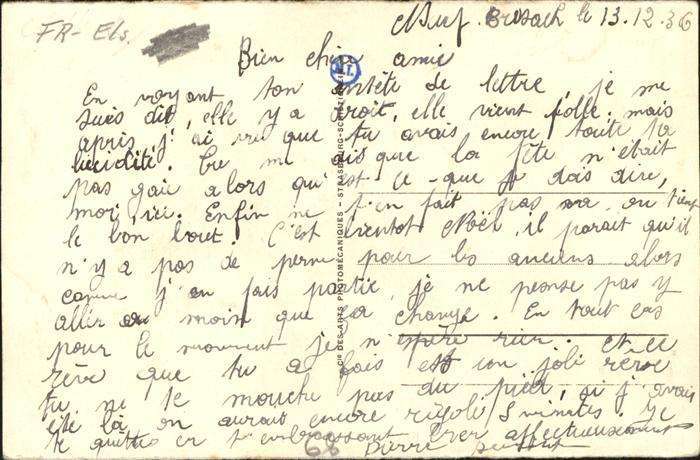 FR- Els.
Neuf. Brisach le 13.12.36
Bien chère amie
En voyant ton entête de lettre, je me
suis dit, elle y a droit, elle vient folle. mais
après, j'ai vu que tu avais encore toute ta
lucidité. Tu me dis que la fête n'était
pas gaie alors qu'est ce que je dois dire,
moi, ici. Enfin ne t'en fait pas va, on tient
le bon bout. C'est bientot Noël, il parait qu'il
n'y a pas de perm pour les anciens alors
comme j'en fais partie, je ne pense pas y
aller au moins que ça change. En tout cas
pour le moment je n'espère rien. et ce
rêve que tu a fais est un joli rêve
tu ne te mouche pas du pied, si j'avais
été là on aurait encore rigolé 5 minutes. Je
te quitte en t'embrassant bien affectueusement
Pierre
68
Cie DES ARTS PHOTOMÉCANIQUES - STRASBOURG-SCHILTIGHEIM